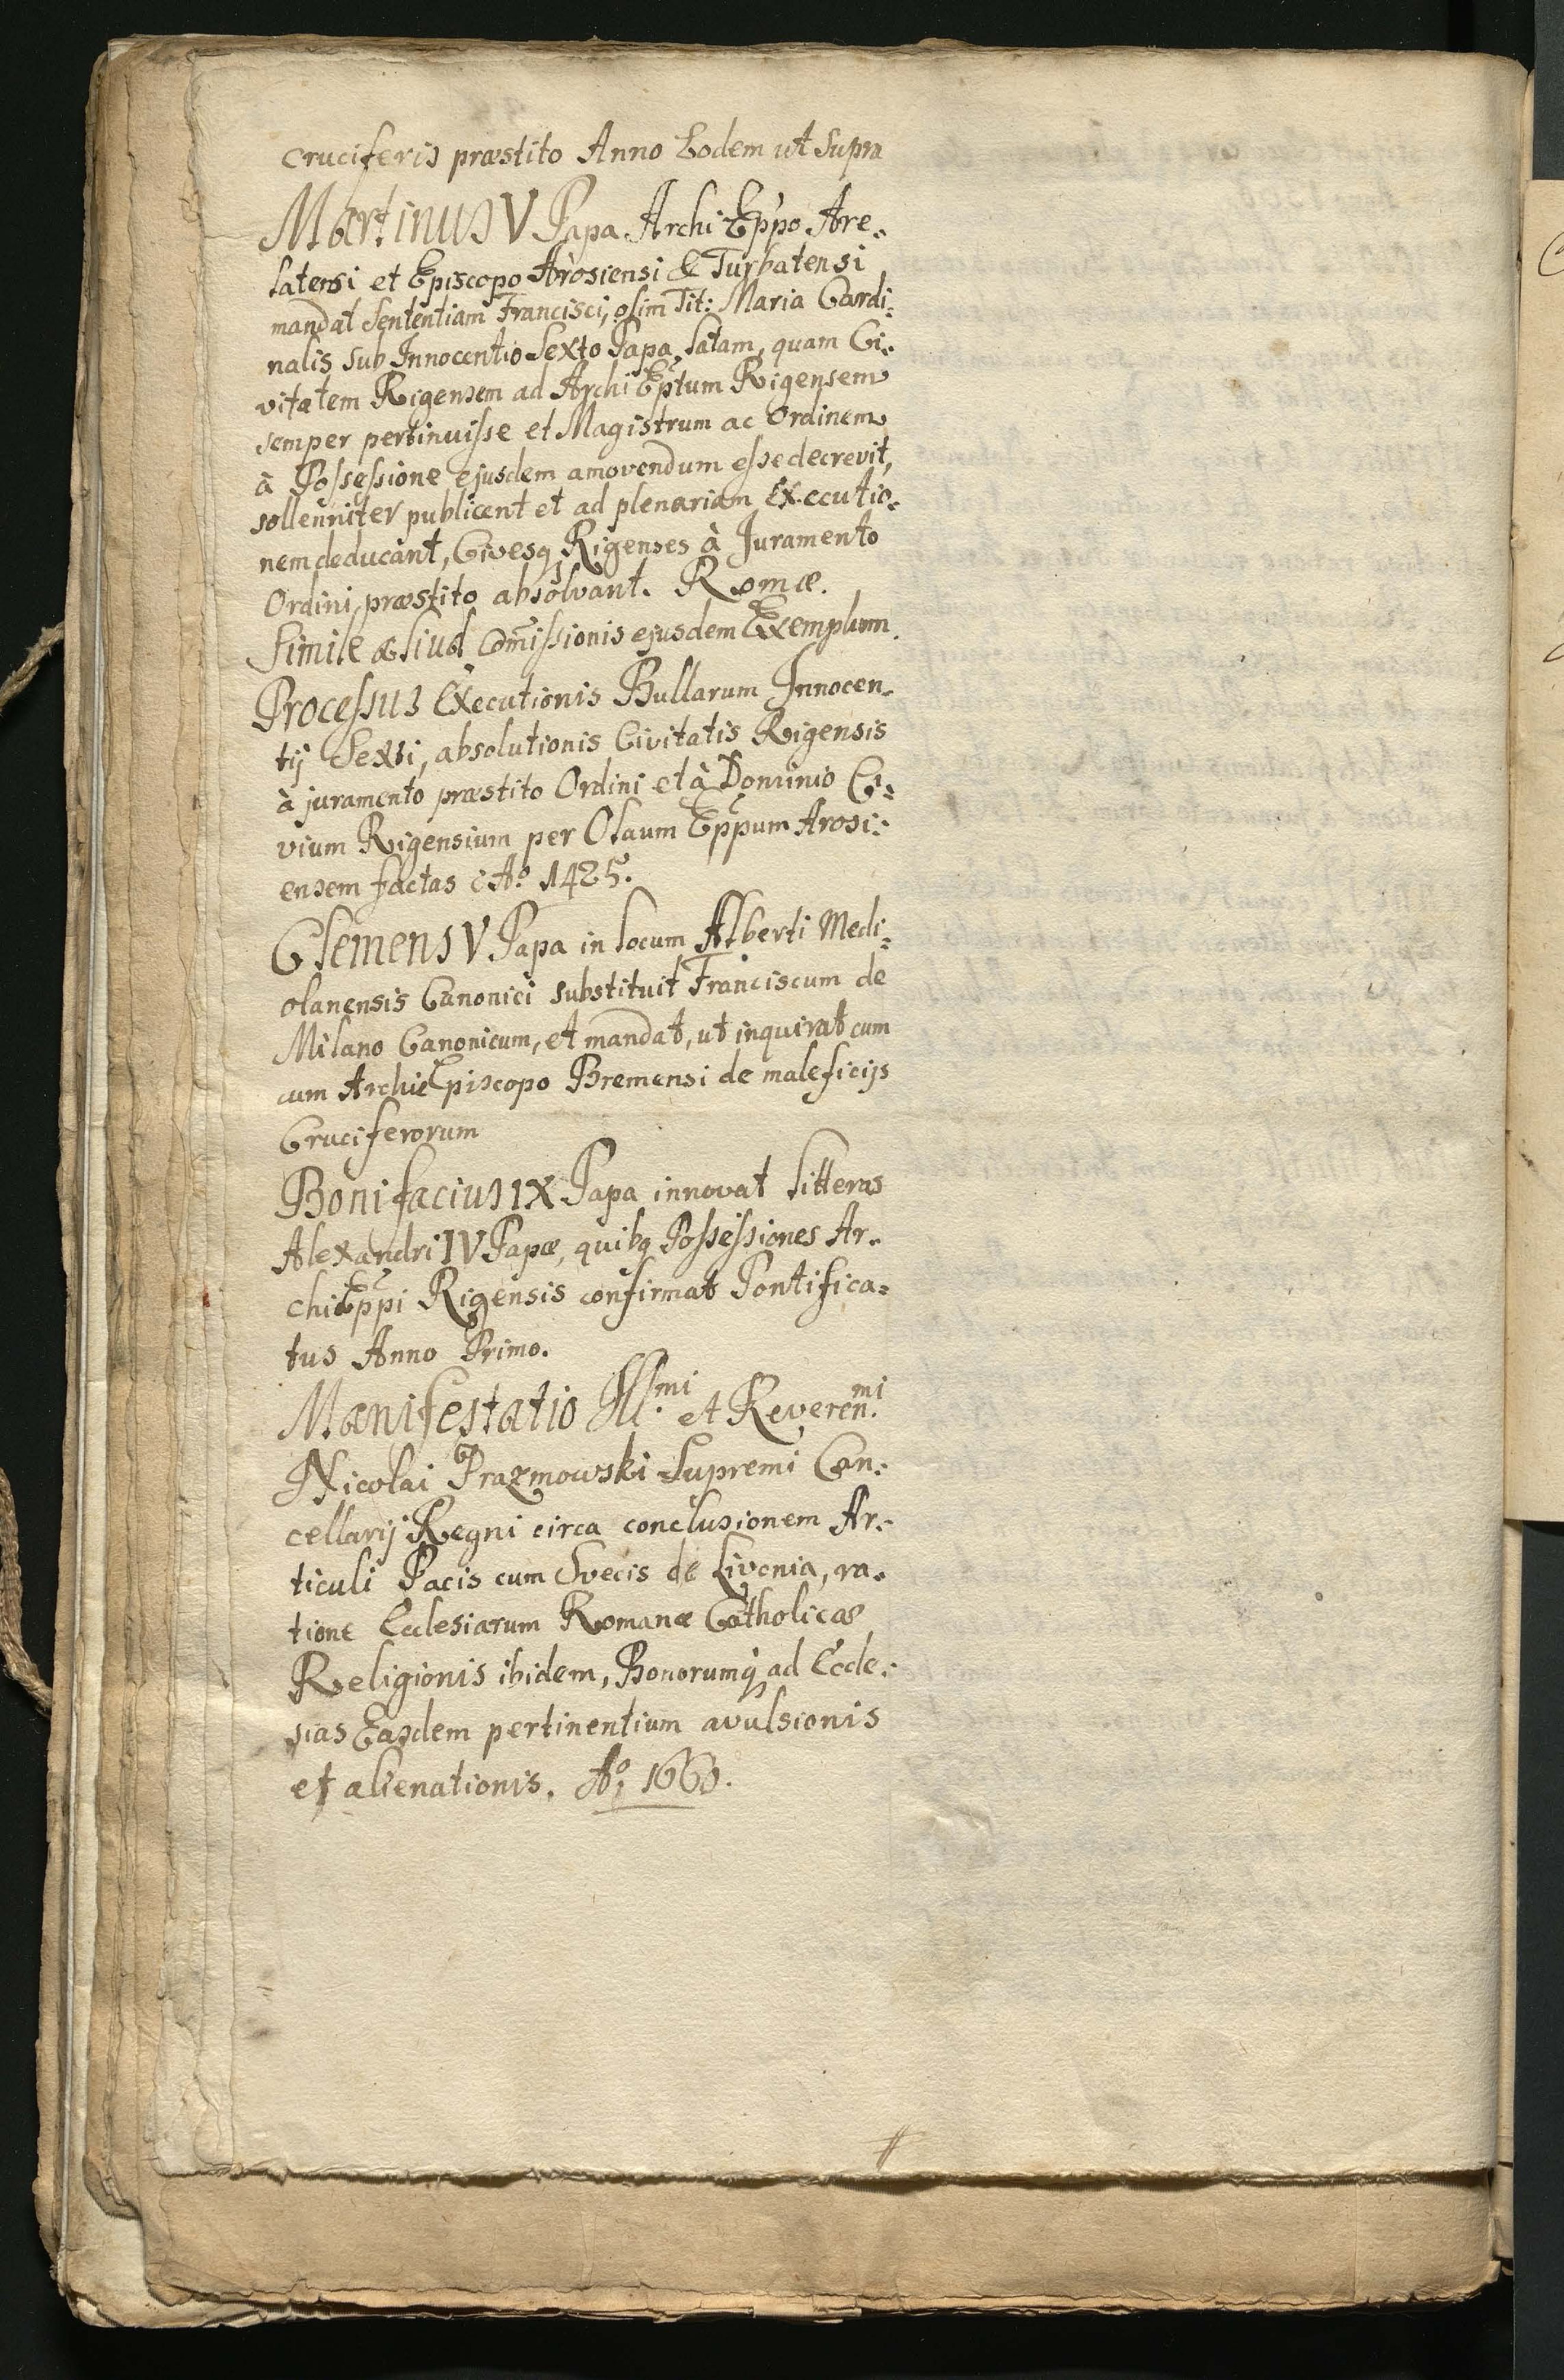 cruciferis præstito Anno Eodem ut supra
Martinus V Papa Archi Eppo Are-
latensi et Episcopo Arosiensi & Turbatensi
mandat sententiam Francisci, olim Tit: Maria Cardi-
nalis sub Innocentio Sexto Papa latam, quam Ci-
vitatem Rigensem ad Archi Eptum Rigensem
semper pertinuisse et Magistrum ac Ordinem
à Possessione ejusdem amovendum esse decrevit,
sollenniter publicent et ad plenariam Executio-
nem deducant, Civesq Rigenses à Juramento
Ordini præstito absolvant. Romæ.
Simile aliud Comissionis ejusdem Exemplum.
Processus Executionis Bullarum Innocen-
tij Sexti, absolutionis Civitatis Rigensis
à juramento præstito Ordini et à Dominio Ci-
vium Rigensium per Olaum Eppum Arosi-
ensem factas Aº 1425.
Clemens V Papa in locum Alberti Medi-
olanensis Canonici substituit Franciscum de
Milano Canonicum, et mandat, ut inquirat cum
cum Archi Episcopo Bremensi de maleficijs
Cruciferorum
Bonifacius IX Papa innovat litteras
Alexandri IV Papæ, quibq Possessiones Ar-
chi Eppi Rigensis confirmat Pontifica-
tus Anno Primo.
Manifestatio Ill.mi et Reveren.mi
Nicolai Prazmowski Supremi Can-
cellarij Regni circa conclusionem Ar-
ticuli Pacis cum Svecis de Livonia, ra-
tione Ecclesiarum Romanæ Catholicæ
Religionis ibidem, Bonorumq ad Eccle-
sias Easdem pertinentium avulsionis
et alienationis. Aº 1660.